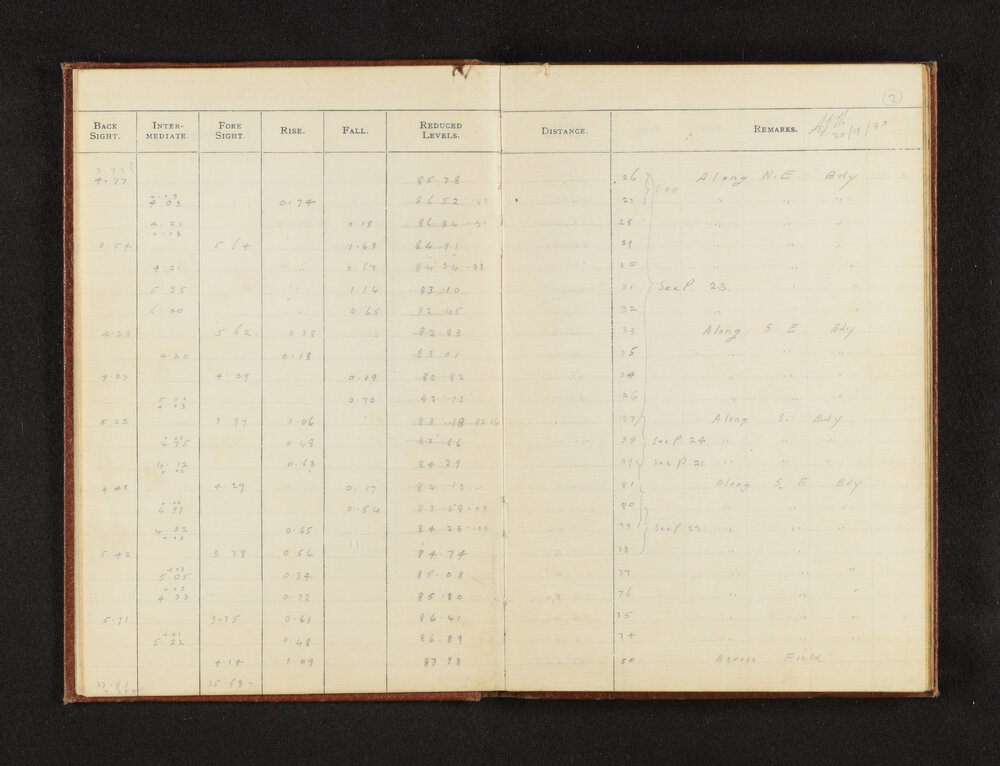 2
BACK SIGHT. INTER- MEDIATE FORE SIGHT. RISE. FALL. REDUCED LEVELS. DISTANCE. REMARKS.
20/9/30
4.77 85.78 26 Along N.E Bdy
4.03 0.74 86.52 27 1.00 " " "
4.21 0.18 86.34 .31 28 " " "
5.54 5.64 1.43 84.91 29 " " "
4.21 0.67 84.24 .23 30 " " "
5.35 1.14 83.10 31 See P. 23. " "
6.00 0.65 82.45 32 " " "
4.23 5.62 0.38 82.83 33 Along S.E Bdy
4.20 0.18 83.01 35 " " "
4.33 4.39 0.19 82.82 34 " " "
0.70 82.12 36 " " "
5.23 3.97 1.06 83.18 37 Along S. Bdy
4.75 0.48 83.66 38 See P. 24. " " "
4.12 0.63 84.29 39 See P. 21 " " "
4.43 4.29 0.17 84.12 81 Along S.E Bdy
4.97 0.54 83.58 80 " " "
4.32 0.65 84.23 79 See P. 22 " " "
5.42 3.78 0.54 84.74 78 " " "
5.05 0.34 85.08 77 " " "
4.33 0.72 85.80 76 " " "
5.71 3.75 0.61 86.41 75 " " "
5.22 0.48 86.89 74 " " "
4.14 1.09 87.98 50 Across Field